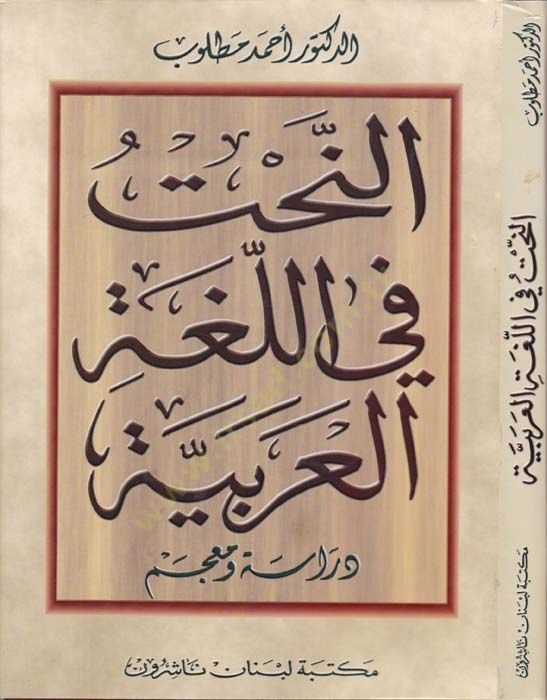 الدكتور أحمد مطلوب
النَّحْتُ
في اللّغَةِ
العَرَبيَّة
دراسة ومعجم
مكتبة لبنان ناشرون
الدكتور أحمد مطلوب
النَّحْتُ في اللّغَةِ العَرَبيَّة
مكتبة لبنان ناشرون